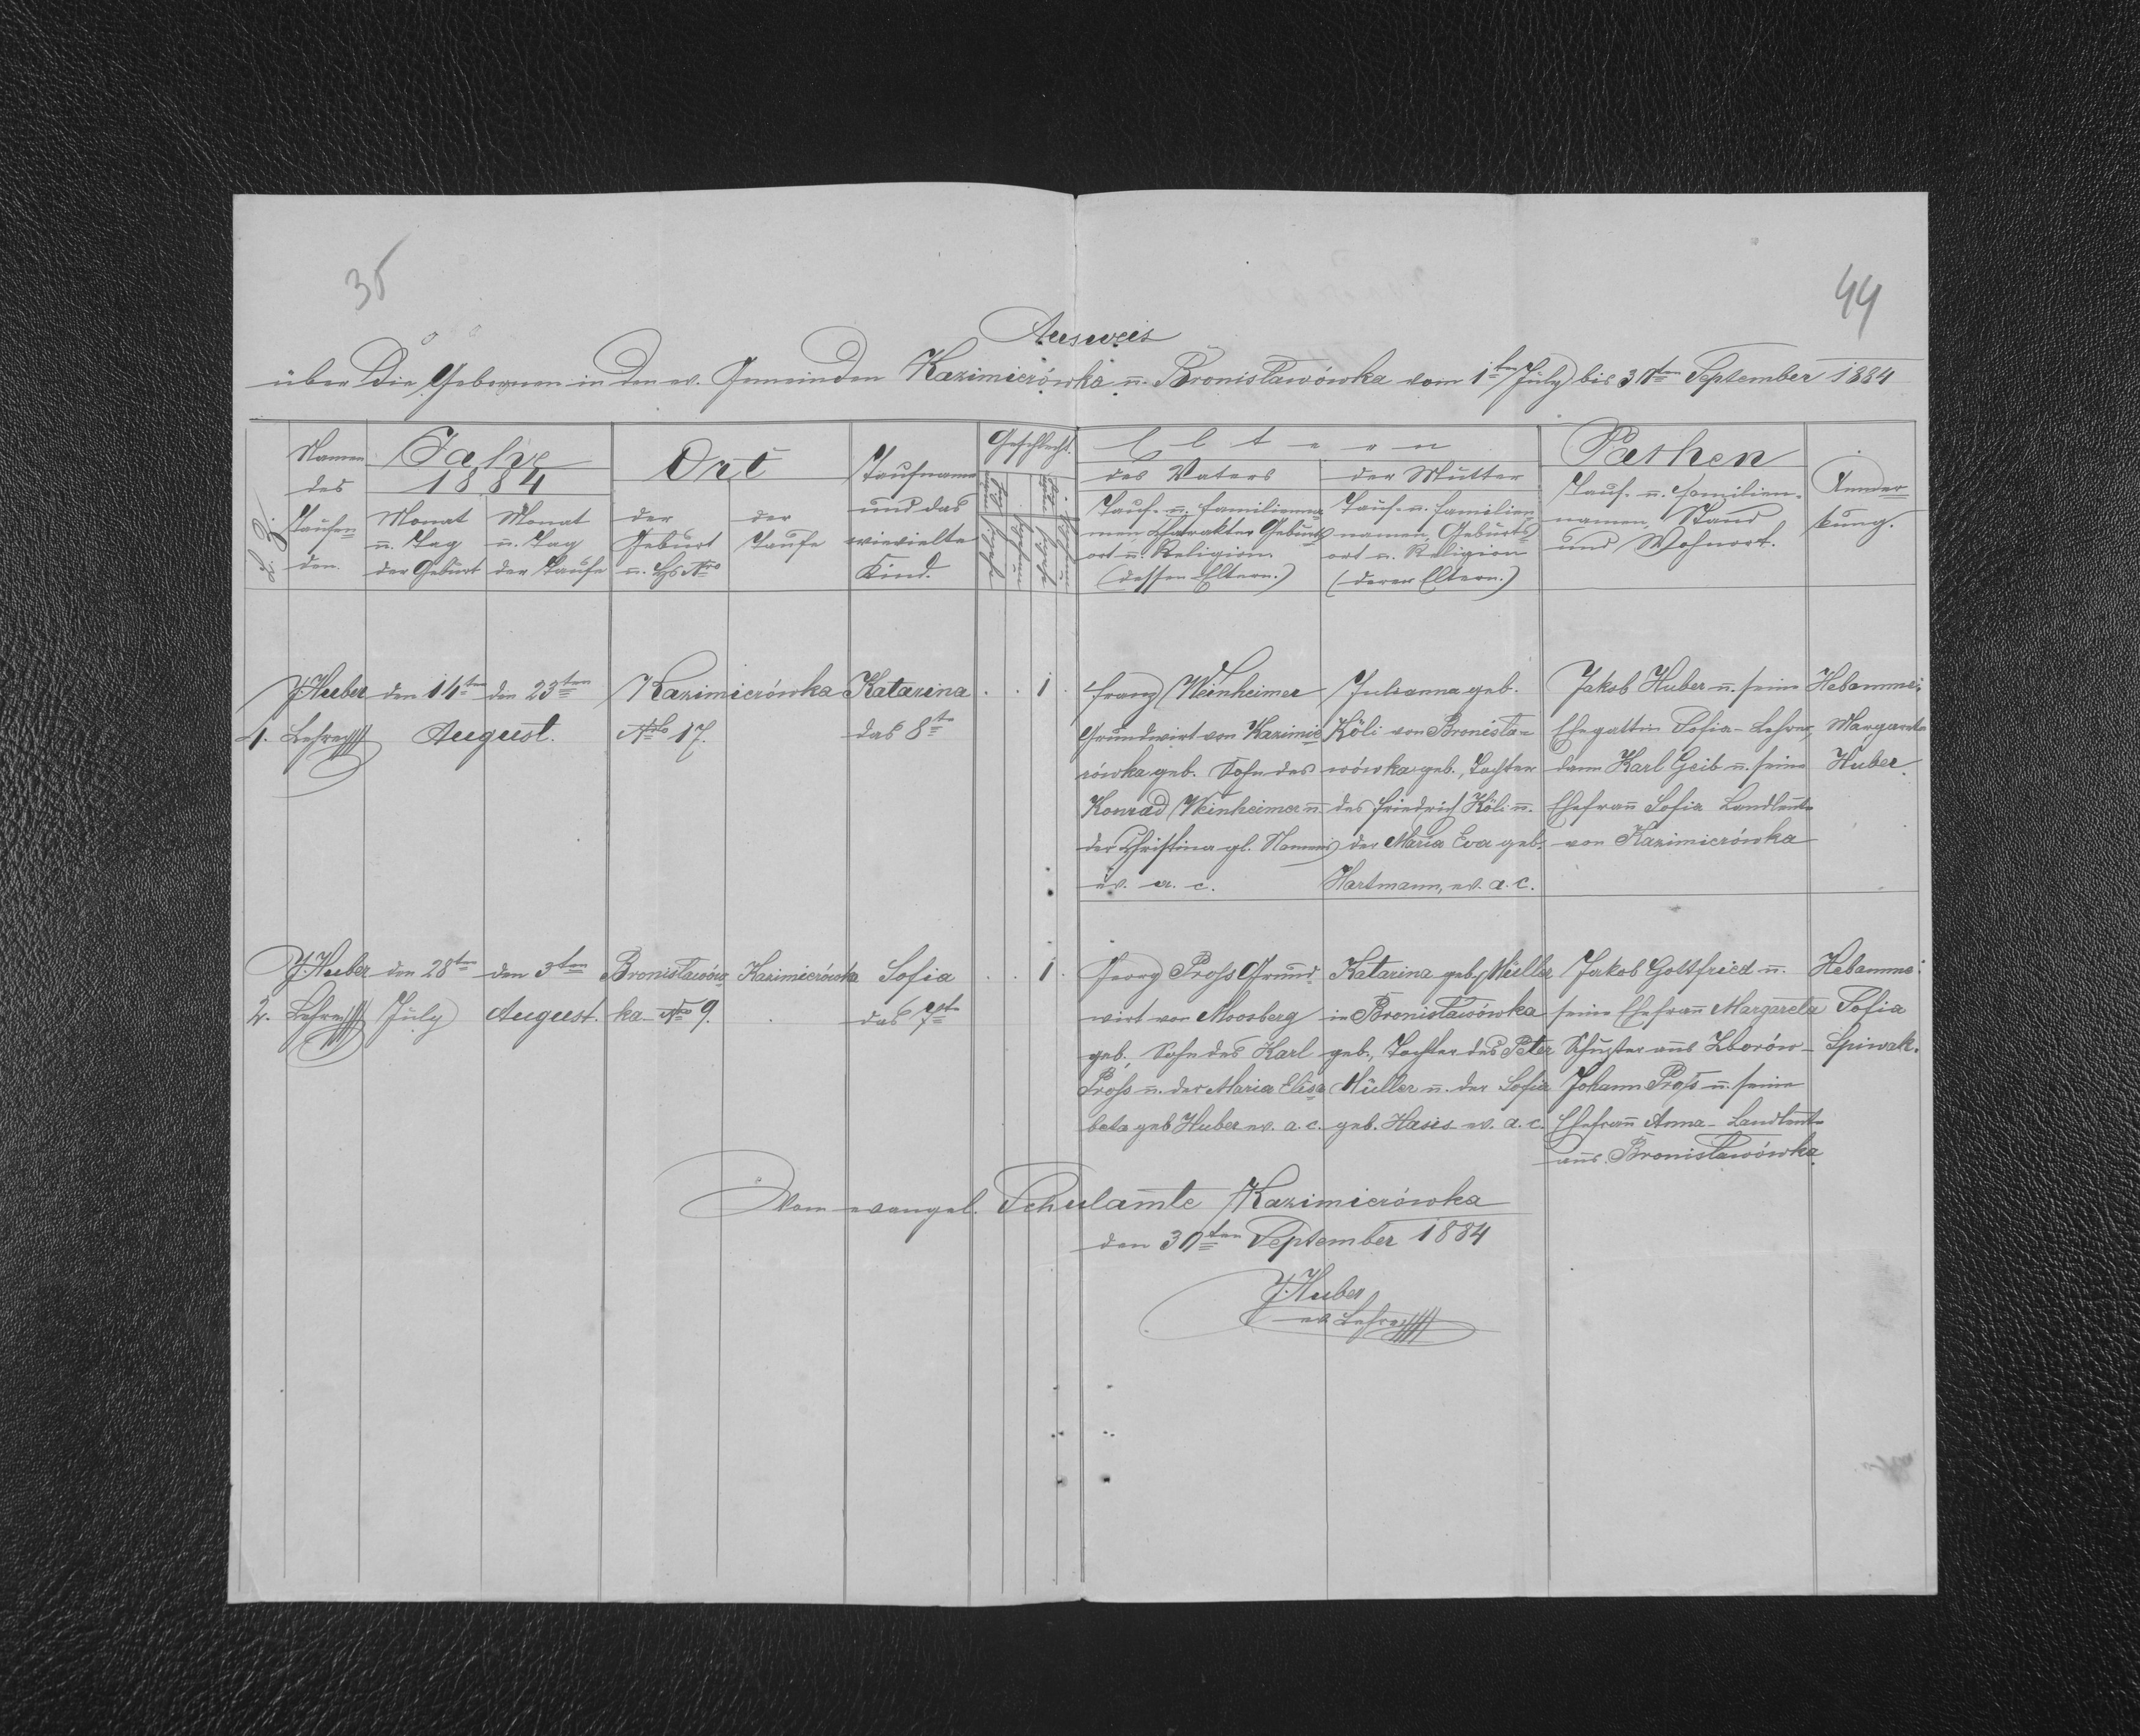 35
44
Ausweis
über die Gebornen in den ev. Gemeinden Kazimierówka u. Bronisławówka vom 1ten July bis 30ten September 1884
L. Z.
Namen des Taufen- den.
Jahr 1884
Monat u. Tag der Geburt
Monat u. Tag der Taufe
Ort
der Geburt u. Hs. Nro
der Taufe
Taufname und das wievielte Kind.
Geschlecht.
Eltern
des Vaters
Tauf- u. Familienna-
men Charakter Geburts
ort u. Religion.
(dessen Eltern.)
der Mutter
Tauf- u. Familien-
namen, Geburts-
ort u. Religion
(deren Eltern.)
Pathen
Tauf- u. Familien-
namen, Stand
und Wohnort.
Anmer
kung.
1.
J. Huber
Lehrer
den 14ten
den 23ten
August.
Kazimierówka
Nro 17.
Katarina
das 8te
1
Franz Weinheimer
Grundwirt von Kazimie
rówka geb. Sohn des
Konrad Weinheimer u.
der Christina gl. Namens
ev. a. c.
Julianna geb.
Köli von Bronisła-
wówka geb., Tochter
des Friedrich Köli u.
der Maria Eva geb.
Hartmann, ev. a. c.
Jakob Huber u. seine
Ehegattin Sofia - Lehrer,
dann Karl Geib u. seine
Ehefrau Sofia Landleute
von Kazimierówka
Hebamme:
Margareta
Huber.
2.
J. Huber
Lehrer
den 28ten
July
den 3ten
August.
Bronisławów-
ka Nro 9.
Kazimierówka
Sofia
das 7te
1
Georg Proß Grund-
wirt von Moosberg
geb. Sohn des Karl
Proß u. der Maria Elisa
beta geb Huber ev. a. c.
Katarina geb. Müller
in Bronisławówka
geb., Tochter des Peter
Müller u. der Sofia
geb. Hasis ev. a. c.
Jakob Gottfried u.
seine Ehefrau Margareta
Schuster aus Zborów -
Johann Proß u. seine
Ehefrau Anna - Landleute
aus Bronisławówka.
Hebamme:
Sofia
Spiwak.
Vom evangel. Schulamte Kazimierówka
den 30ten September 1884
J. Huber
ev. Lehrer